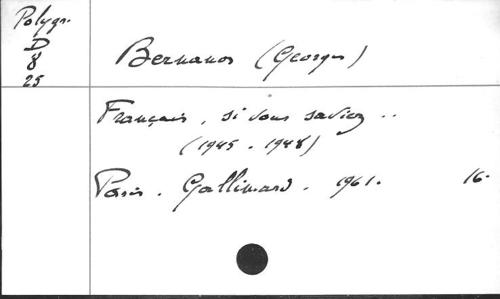 Polygr.
D
8
25
Bernanos (Georges)
Français, si vous saviez..
(1945-1948)
Paris. Gallimard. 1961. 16.